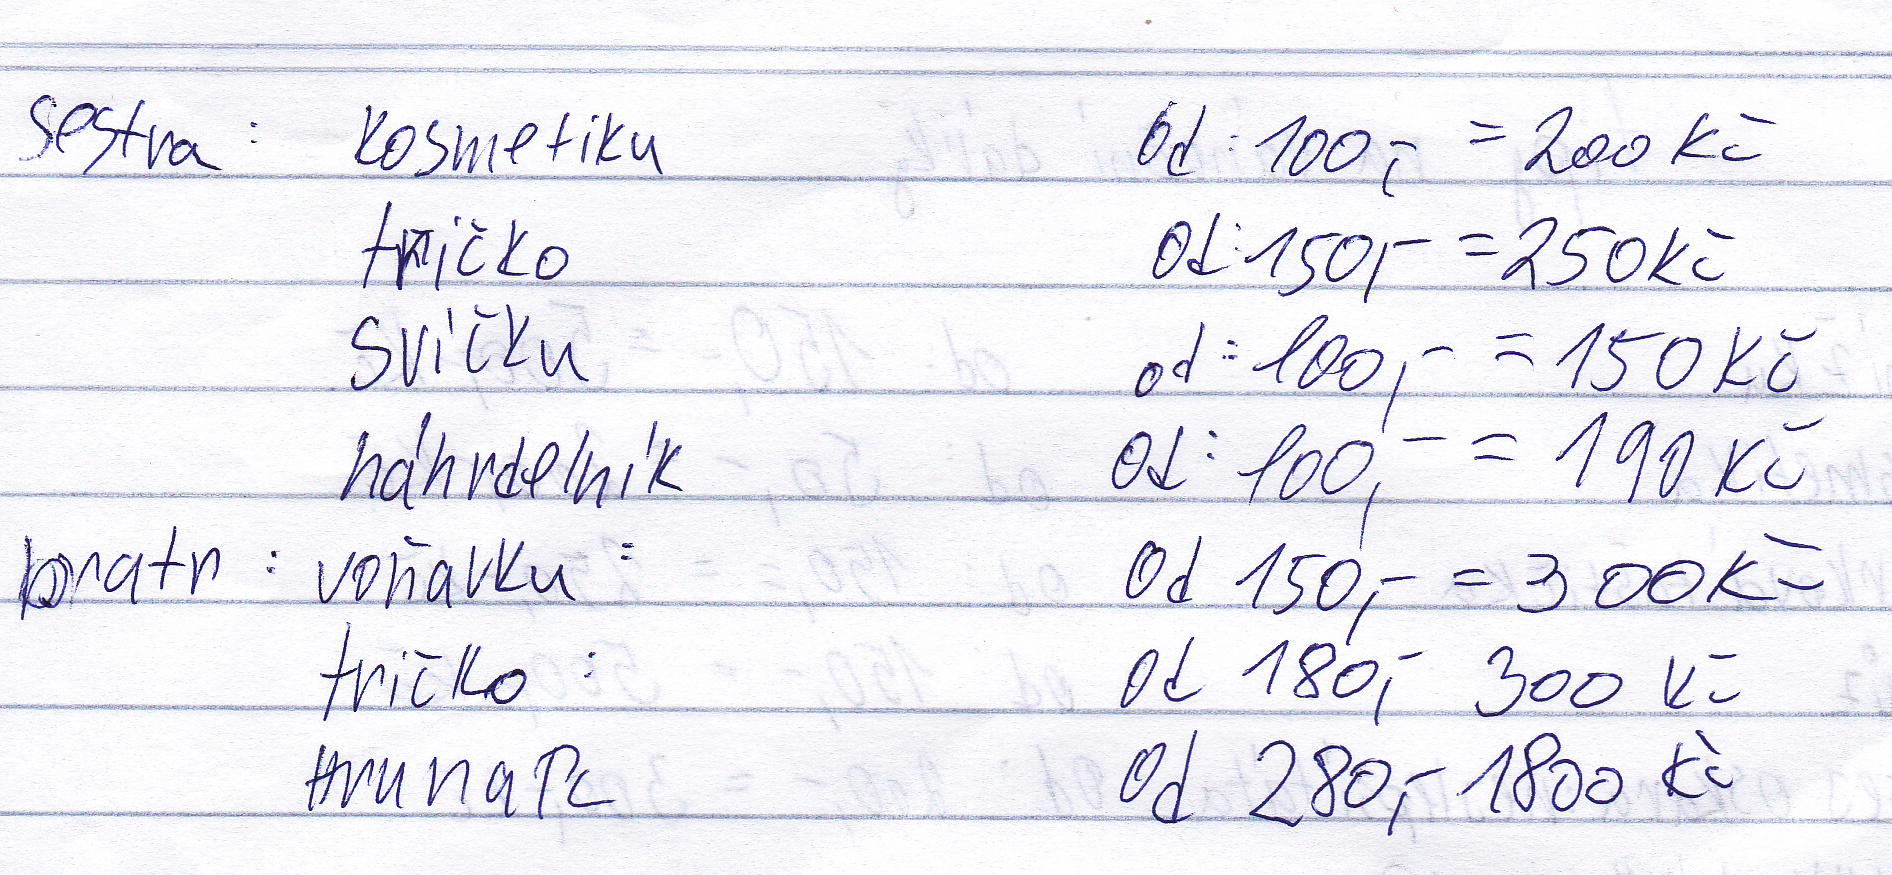 sestra: kosmetiku od: 100,- = 200 Kč
tričko od: 150,- = 250 Kč
svíčku od: 100,- = 150 Kč
náhrdelník od: 100,- = 190 Kč
bratr: voňavku: od 150,- = 300 Kč
tričko: od 180,- 300 Kč
na PC od 280,- 1800 Kč